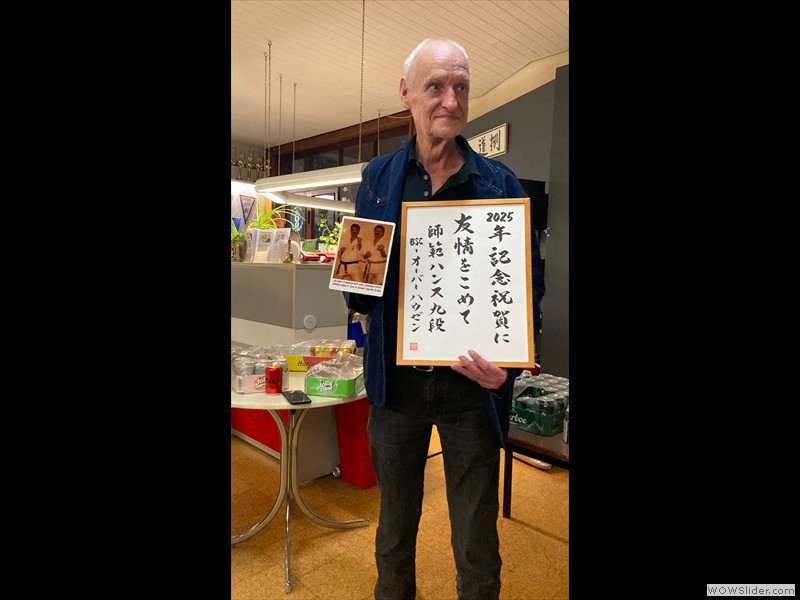 2025年記念祝賀に
友情をこめて
師範ハンス九段
BSC・オーバーハウゼン
道 捌
WOWSlider.com